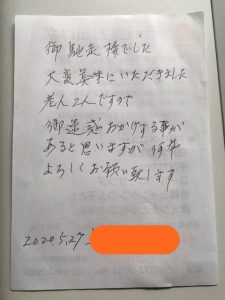 御馳走様でした
大変美味にいただきました
老人2人ですので
御迷惑おかけする事が
あると思いますが何卒
よろしくお願い致します
2020.5.27